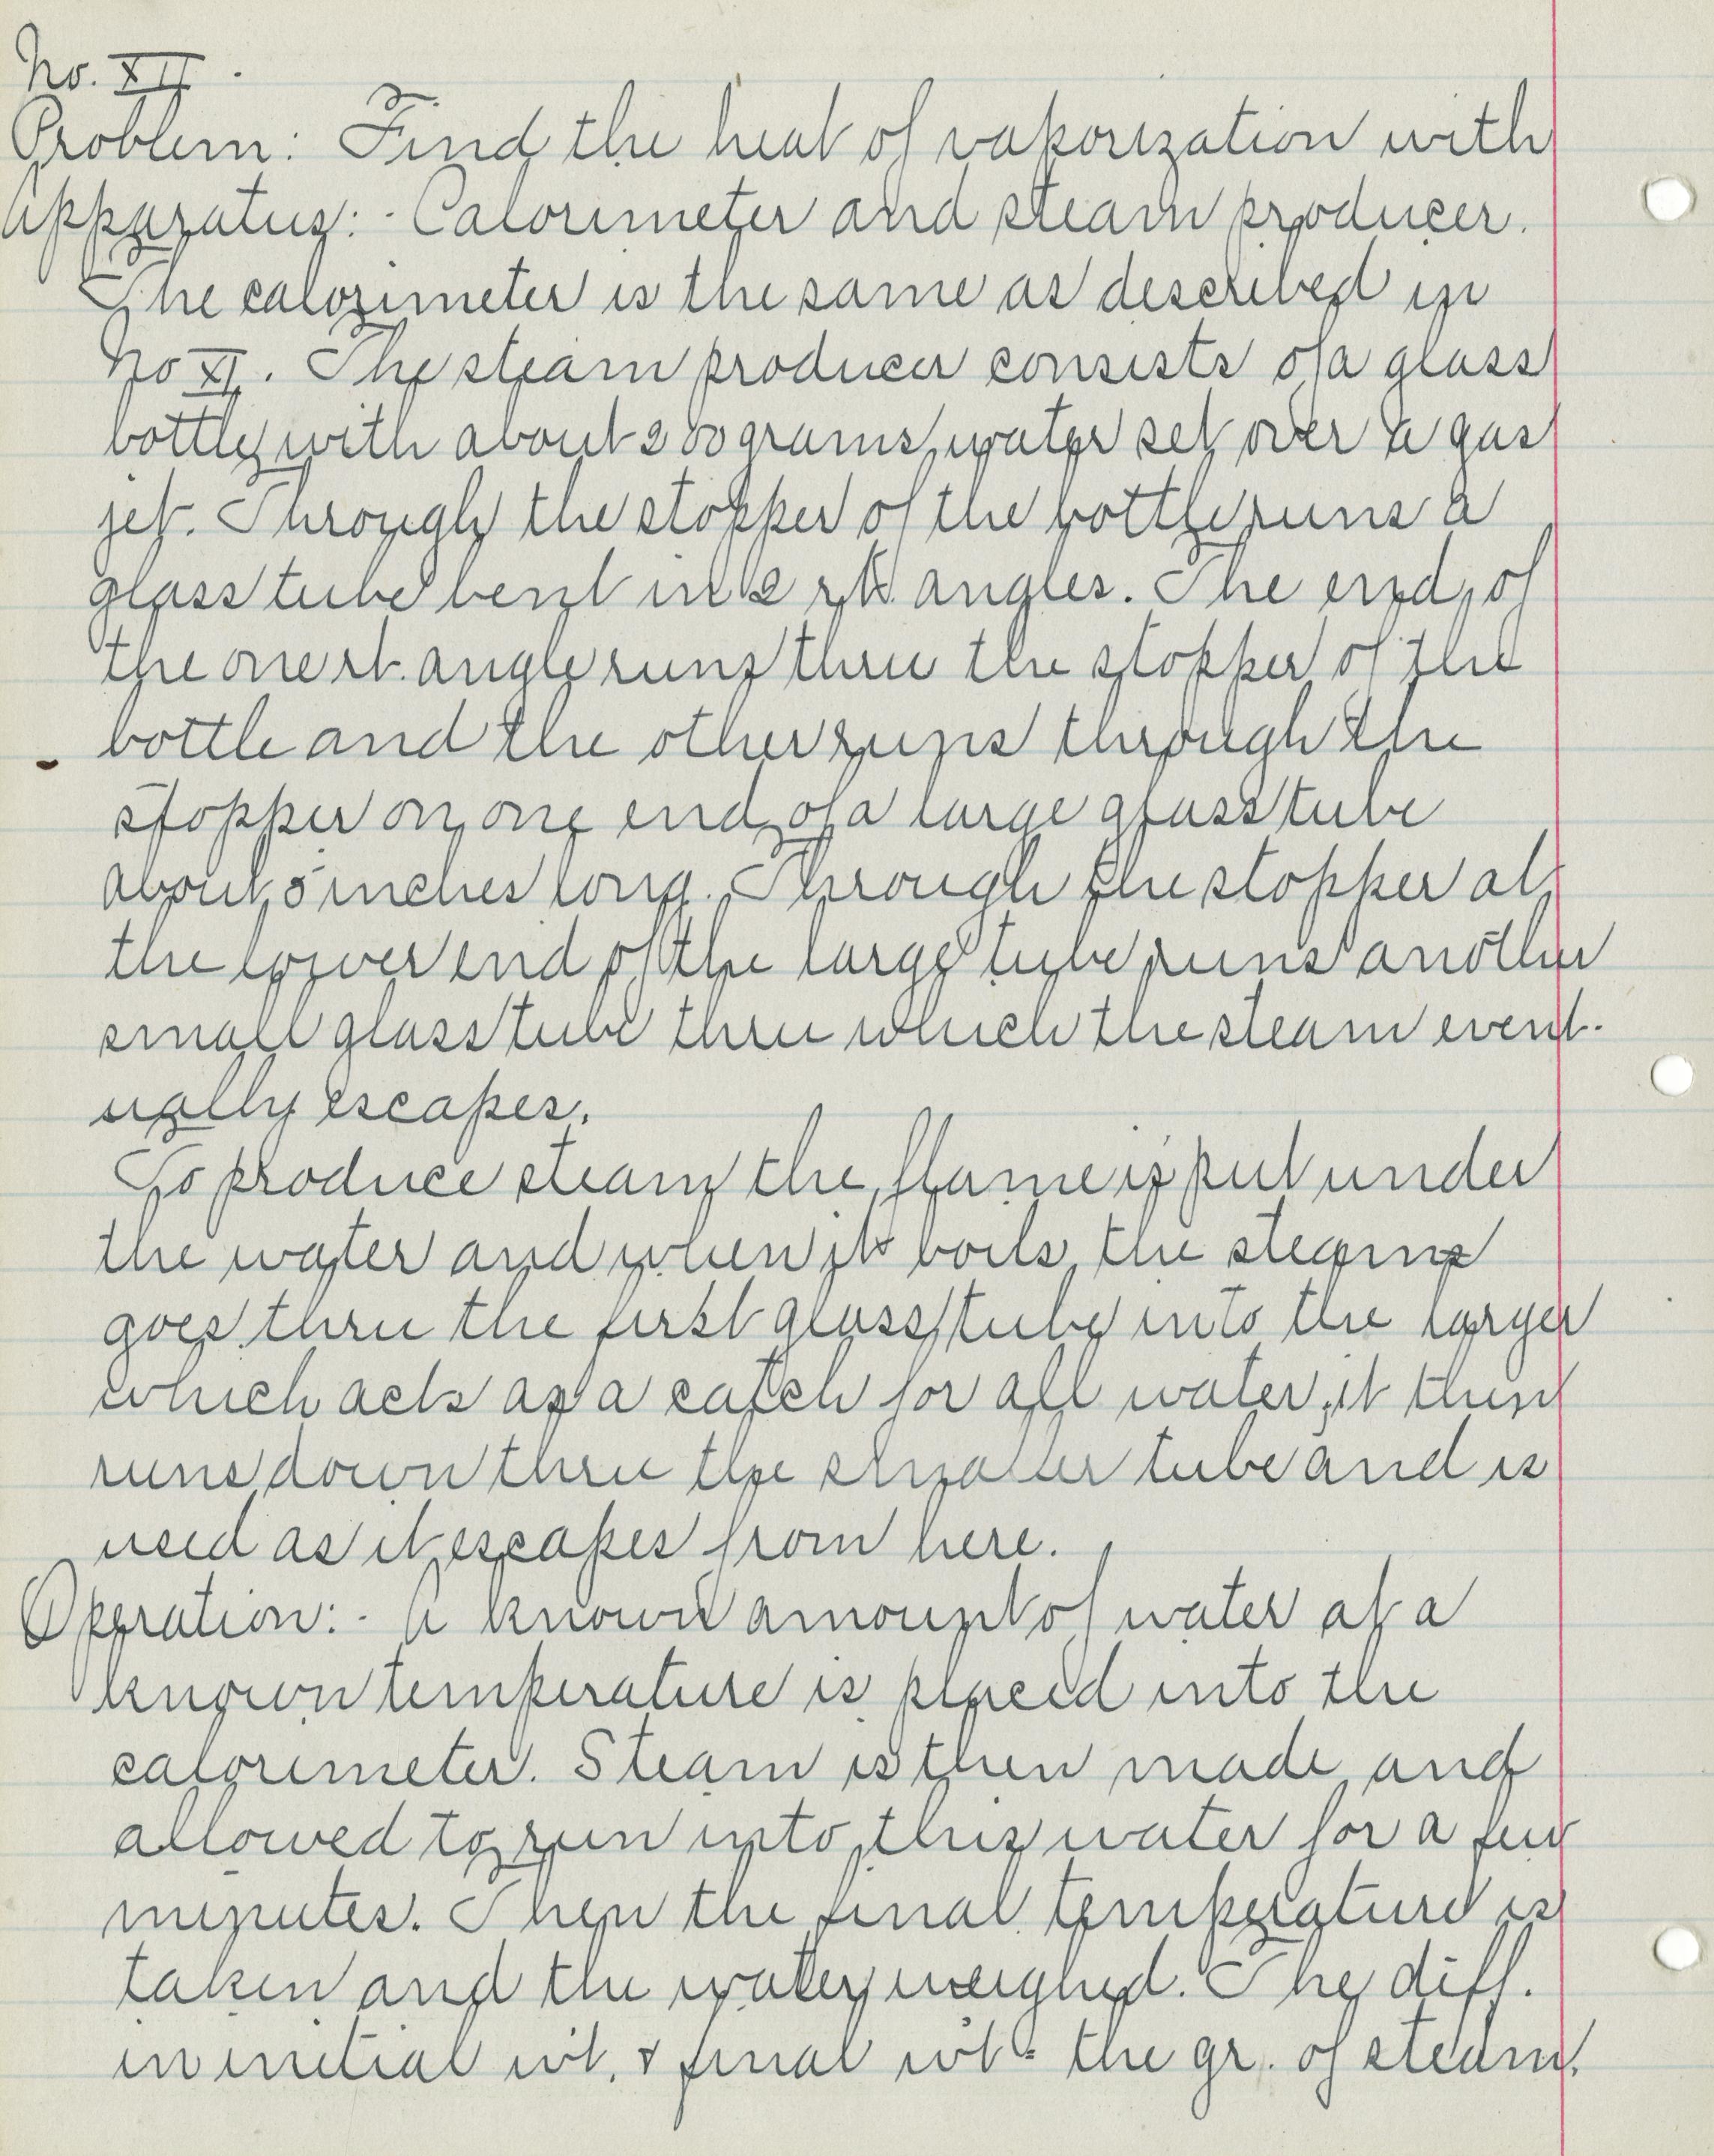 No. XII.
Problem: Find the heat of vaporization with
Apparatus:- Calorimeter and steam producer.
The calorimeter is the same as described in
No XI. The steam producer consists of a glass
bottle with about 200 grams water set over a gas
jet. Through the stopper of the bottle runs a
glass tube bent in 2 rt. angles. The end of
the one rt. angle runs thru the stopper of the
bottle and the other runs through the
stopper on one end of a large glass tube
about 5 inches long. Through the stopper at
the lower end of the large tube runs another
small glass tube thru which the steam event-
ually escapes.
To produce steam the flame is put under
the water and when it boils, the steam
goes thru the first glass tube into the larger
which acts as a catch for all water, it then
runs down thru the smaller tube and is
used as it escapes from here.
Operation:- A known amount of water at a
known temperature is placed into the
calorimeter. Steam is then made and
allowed to run into this water for a few
minutes. Then the final temperature is
taken and the water weighed. The diff.
in initial wt. & final wt = the gr. of steam.